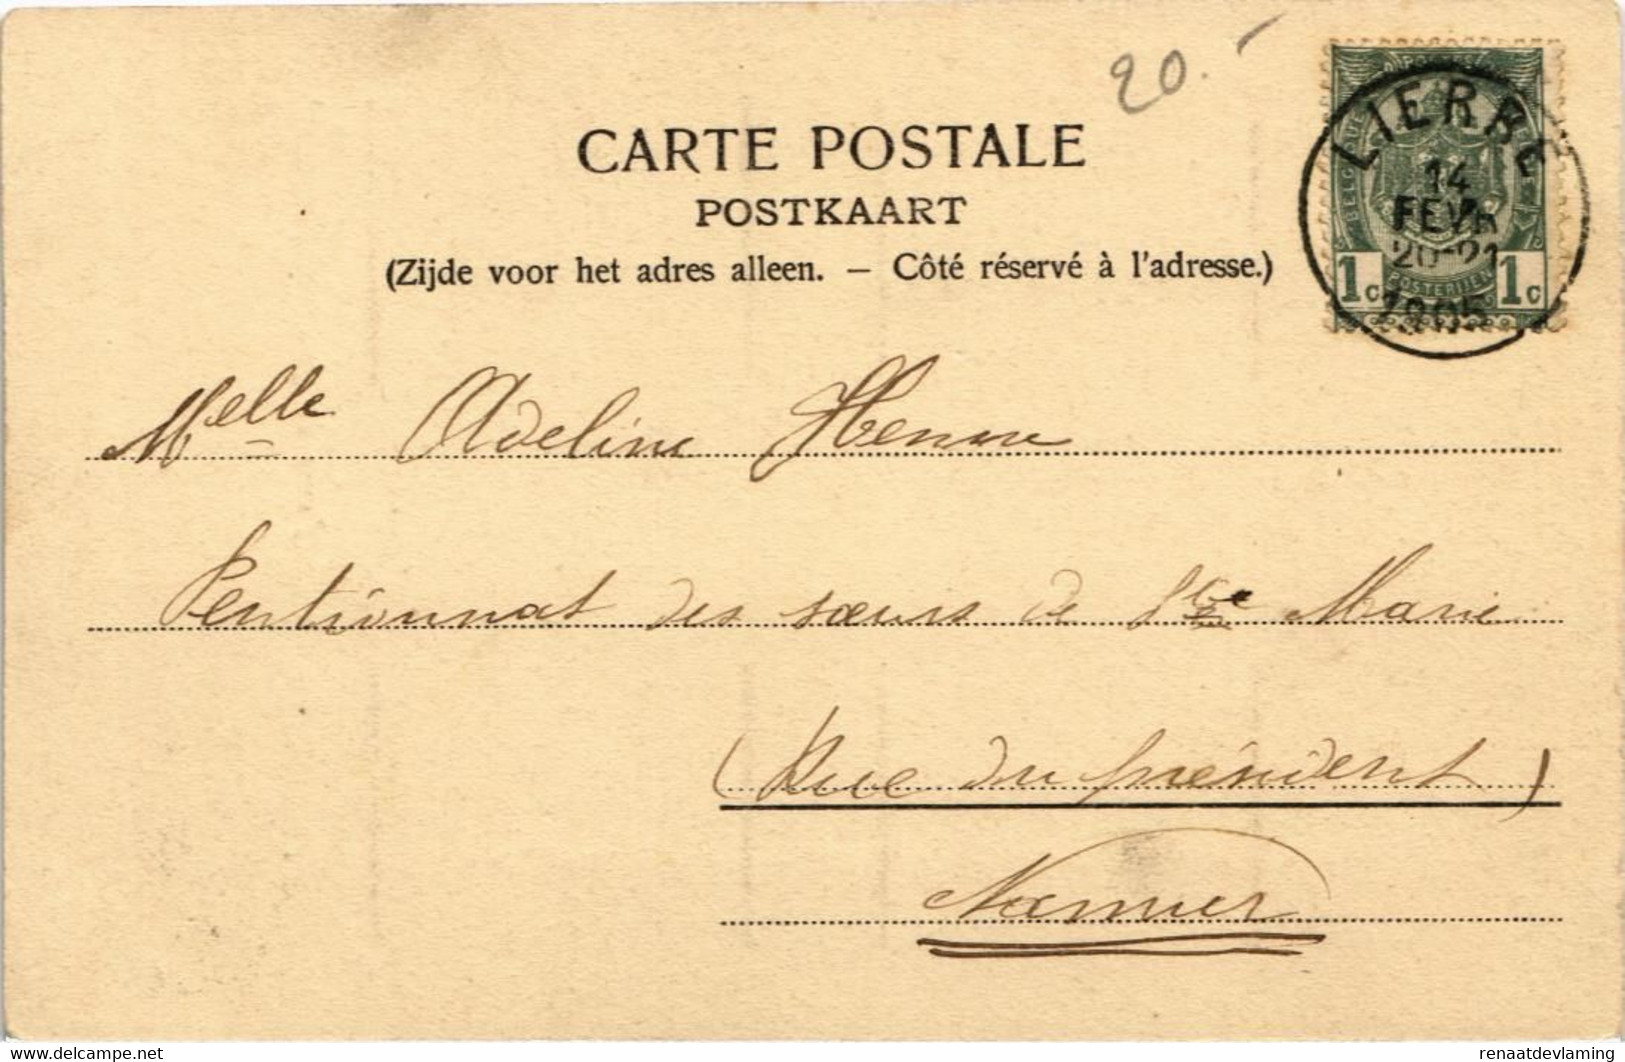 20.-
CARTE POSTALE
POSTKAART
(Zijde voor het adres alleen. — Côté réservé à l'adresse.)
LIERRE
14
FEVR
20-21
1905
1c 1c
POSTERIJEN
Melle Adeline Henne
Pentionnat des sœurs de Ste Marie
(Rue du président)
Namur
delcampe.net
renaatdevlaming